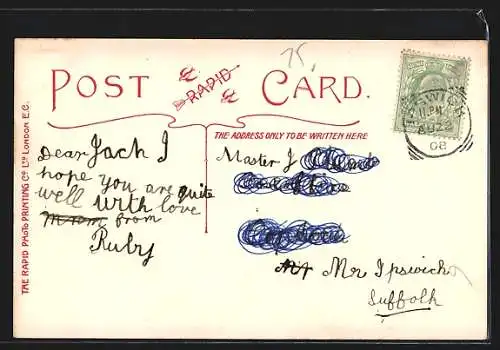 75
POST RAPID CARD.
THE ADDRESS ONLY TO BE WRITTEN HERE
THE RAPID PHOTO PRINTING CO LTD LONDON E.C.
Dear Jack I
hope you are quite
well with love
from
Ruby
Master J
Nr Ipswich
Suffolk
IPSWICH
11 PM
AU 28
08